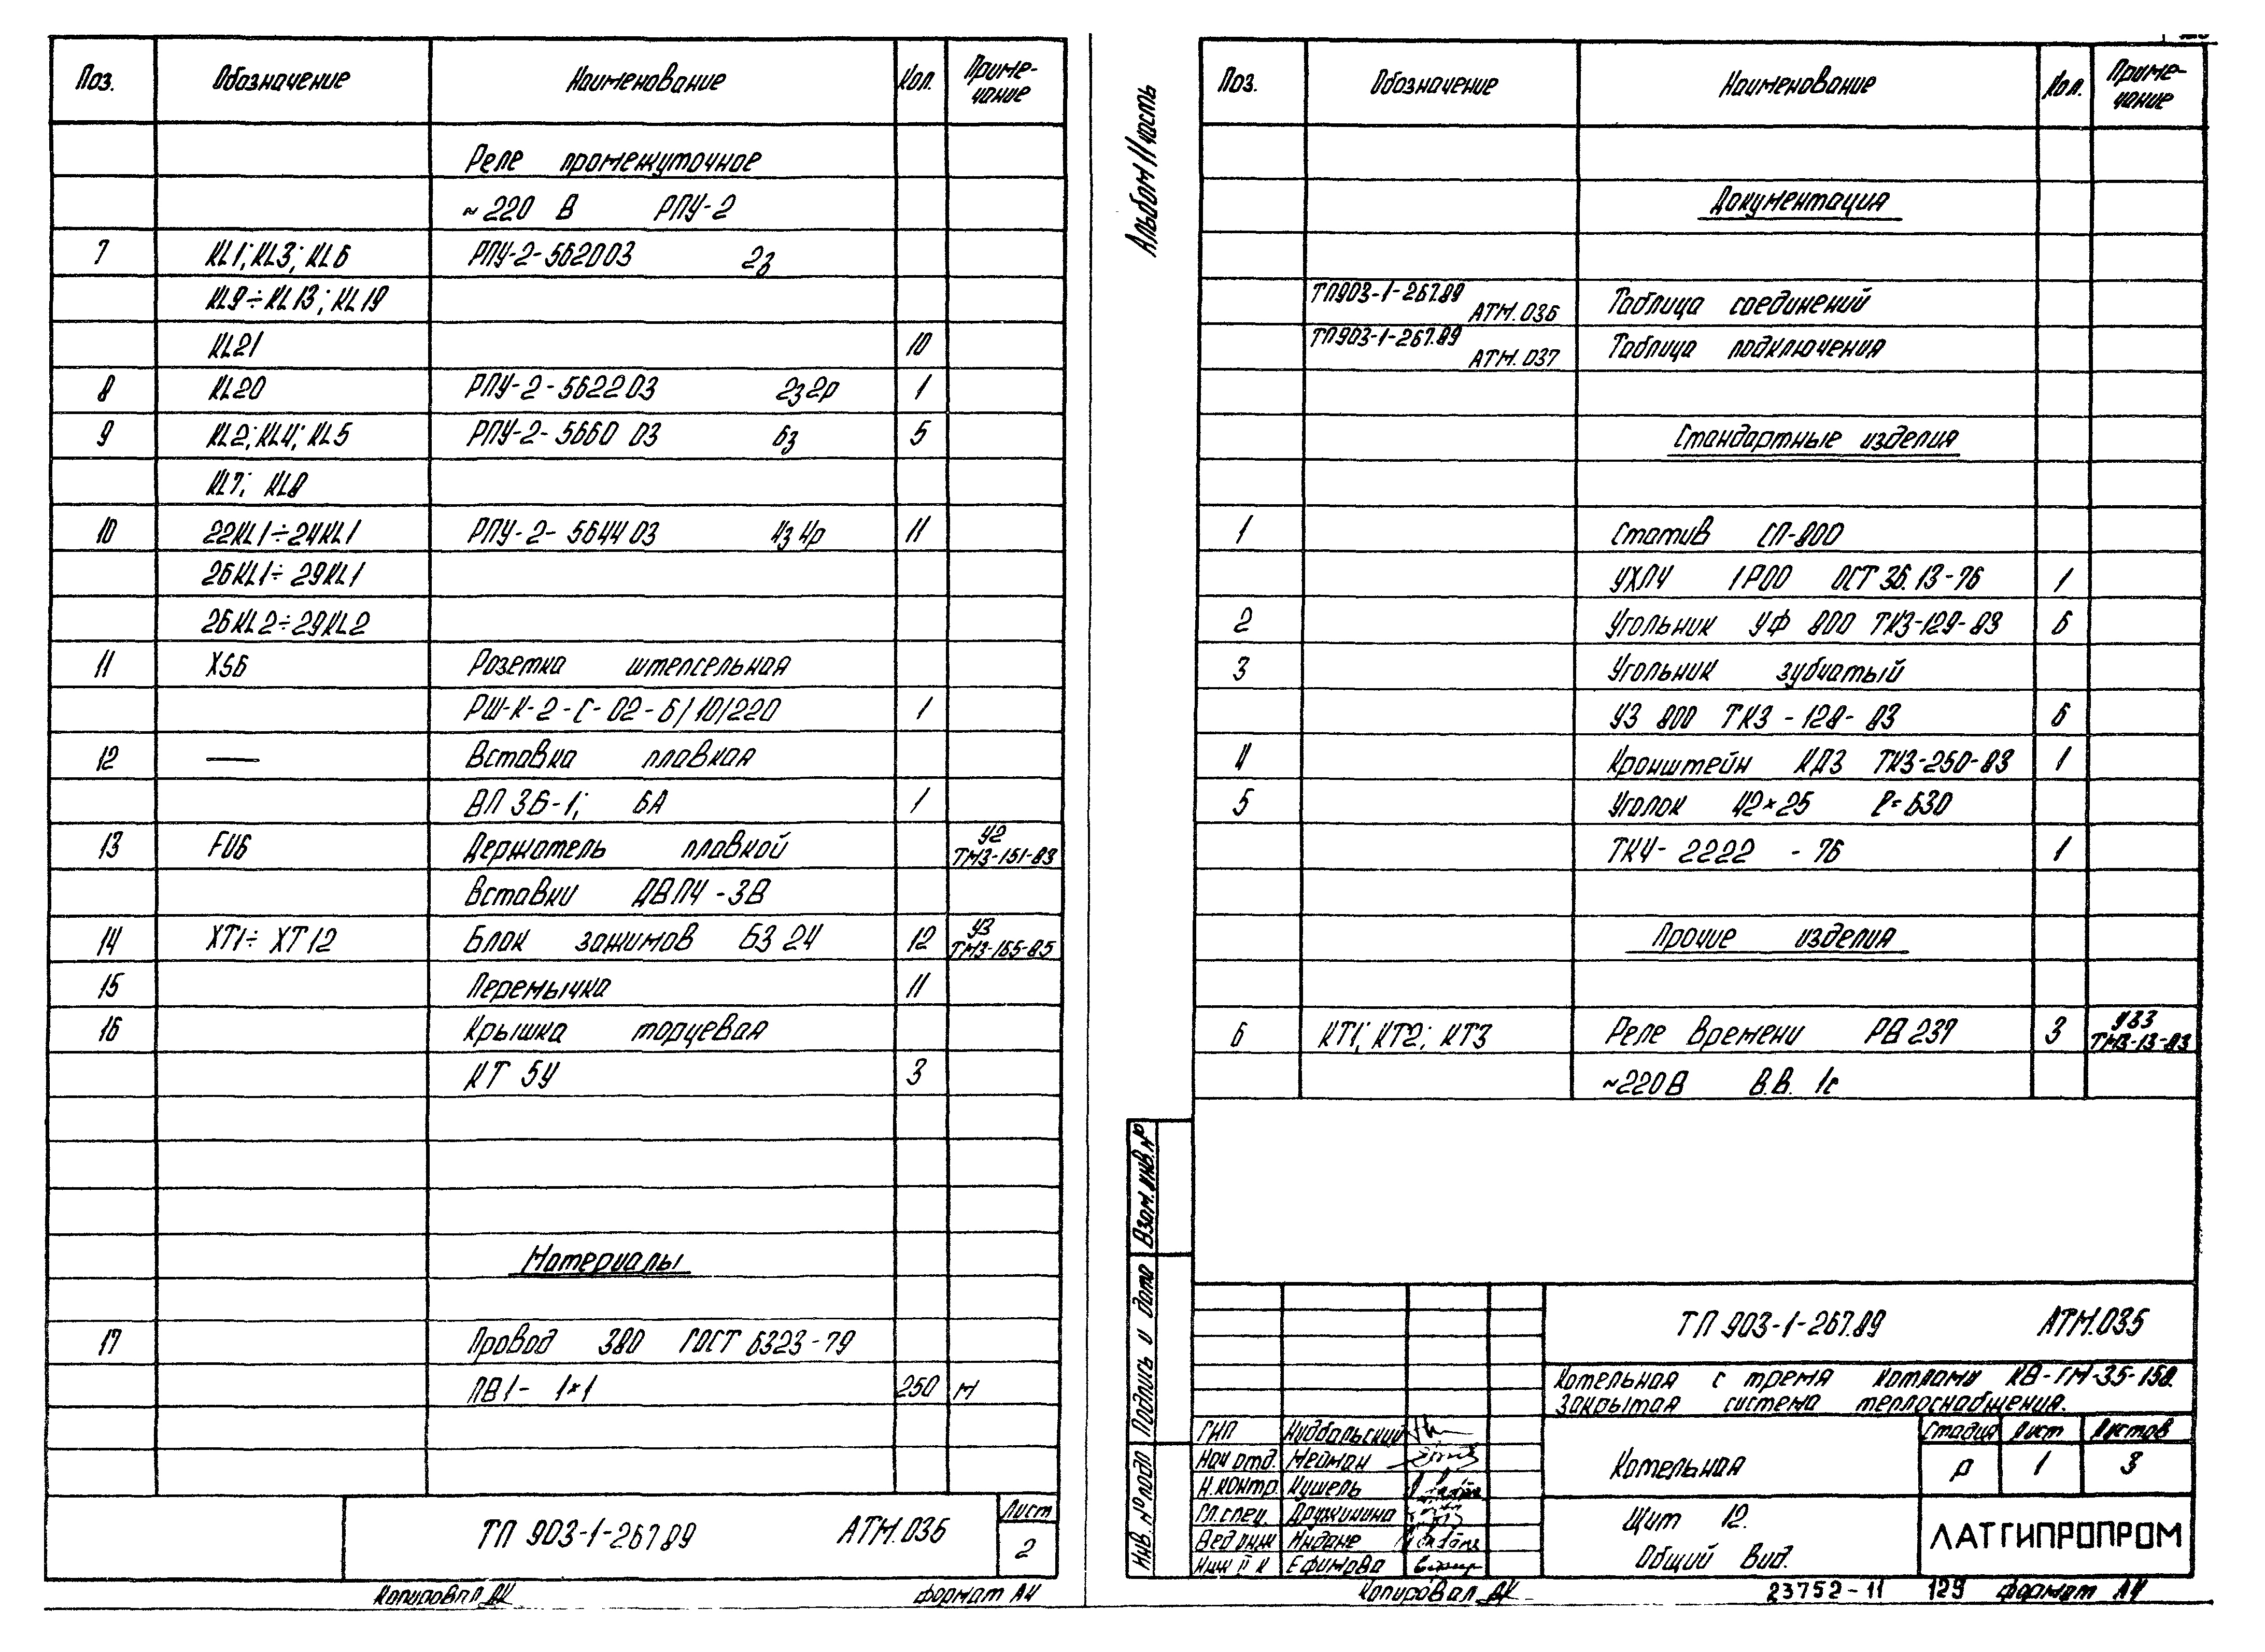 Поз. Обозначение Наименование Кол. Приме-
чание
Реле промежуточное
~220 В РПУ-2
7 KL1; KL3; KL6 РПУ-2-562003 2з
KL9÷KL13; KL19
KL21 10
8 KL20 РПУ-2-562203 2з2р 1
9 KL2; KL4; KL5 РПУ-2-566003 6з 5
KL7; KL8
10 22KL1÷24KL1 РПУ-2-564403 4з4р 11
26KL1÷29KL1
26KL2÷29KL2
11 XS6 Розетка штепсельная
РШ-К-2-С-02-6/10/220 1
12 — Вставка плавкая
ВП3Б-1; 6А 1
13 FU6 Держатель плавкой У2
ТМ3-151-83
Вставки ДВП4-3В
14 XT1÷XT12 Блок зажимов БЗ 24 12 У3
ТМ3-165-85
15 Перемычка 11
16 Крышка торцевая
КТ 5У 3
Материалы
17 Провод 380 ГОСТ 6323-79
ПВ1- 1×1 250 м
ТП 903-1-267.89 АТМ.035
Лист
2
Копировал формат А4
Альбом 11 часть
Поз. Обозначение Наименование Кол. Приме-
чание
Документация
ТП903-1-267.89
АТМ.036 Таблица соединений
ТП903-1-267.89
АТМ.037 Таблица подключения
Стандартные изделия
1 Статив СП-800
УХЛ4 1Р00 ОСТ 36.13-76 1
2 Угольник УФ 800 ТК3-129-83 6
3 Угольник зубчатый
УЗ 800 ТК3-128-83 6
4 Кронштейн КД3 ТК3-250-83 1
5 Уголок 42×25 ℓ=630
ТК4-2222 - 76 1
Прочие изделия
6 КТ1; КТ2; КТ3 Реле времени РВ 237 3
ТМ3-13-83
~220В В.В. 1с
Взам. инв. №
Подпись и дата
Инв. № подл
ТП 903-1-267.89 АТМ.035
Котельная с тремя котлами КВ-ГМ-35-150.
Закрытая система теплоснабжения.
ГИП Нидбальский
Нач отд. Мейман
Н.контр. Кушель
Гл.спец. Дружинина
Вед инж Индане
Инж II к Ефимова
Котельная
Стадия Лист Листов
Р 1 3
Щит 12.
Общий вид.
ЛАТГИПРОПРОМ
Копировал 23752-11 129 формат А4